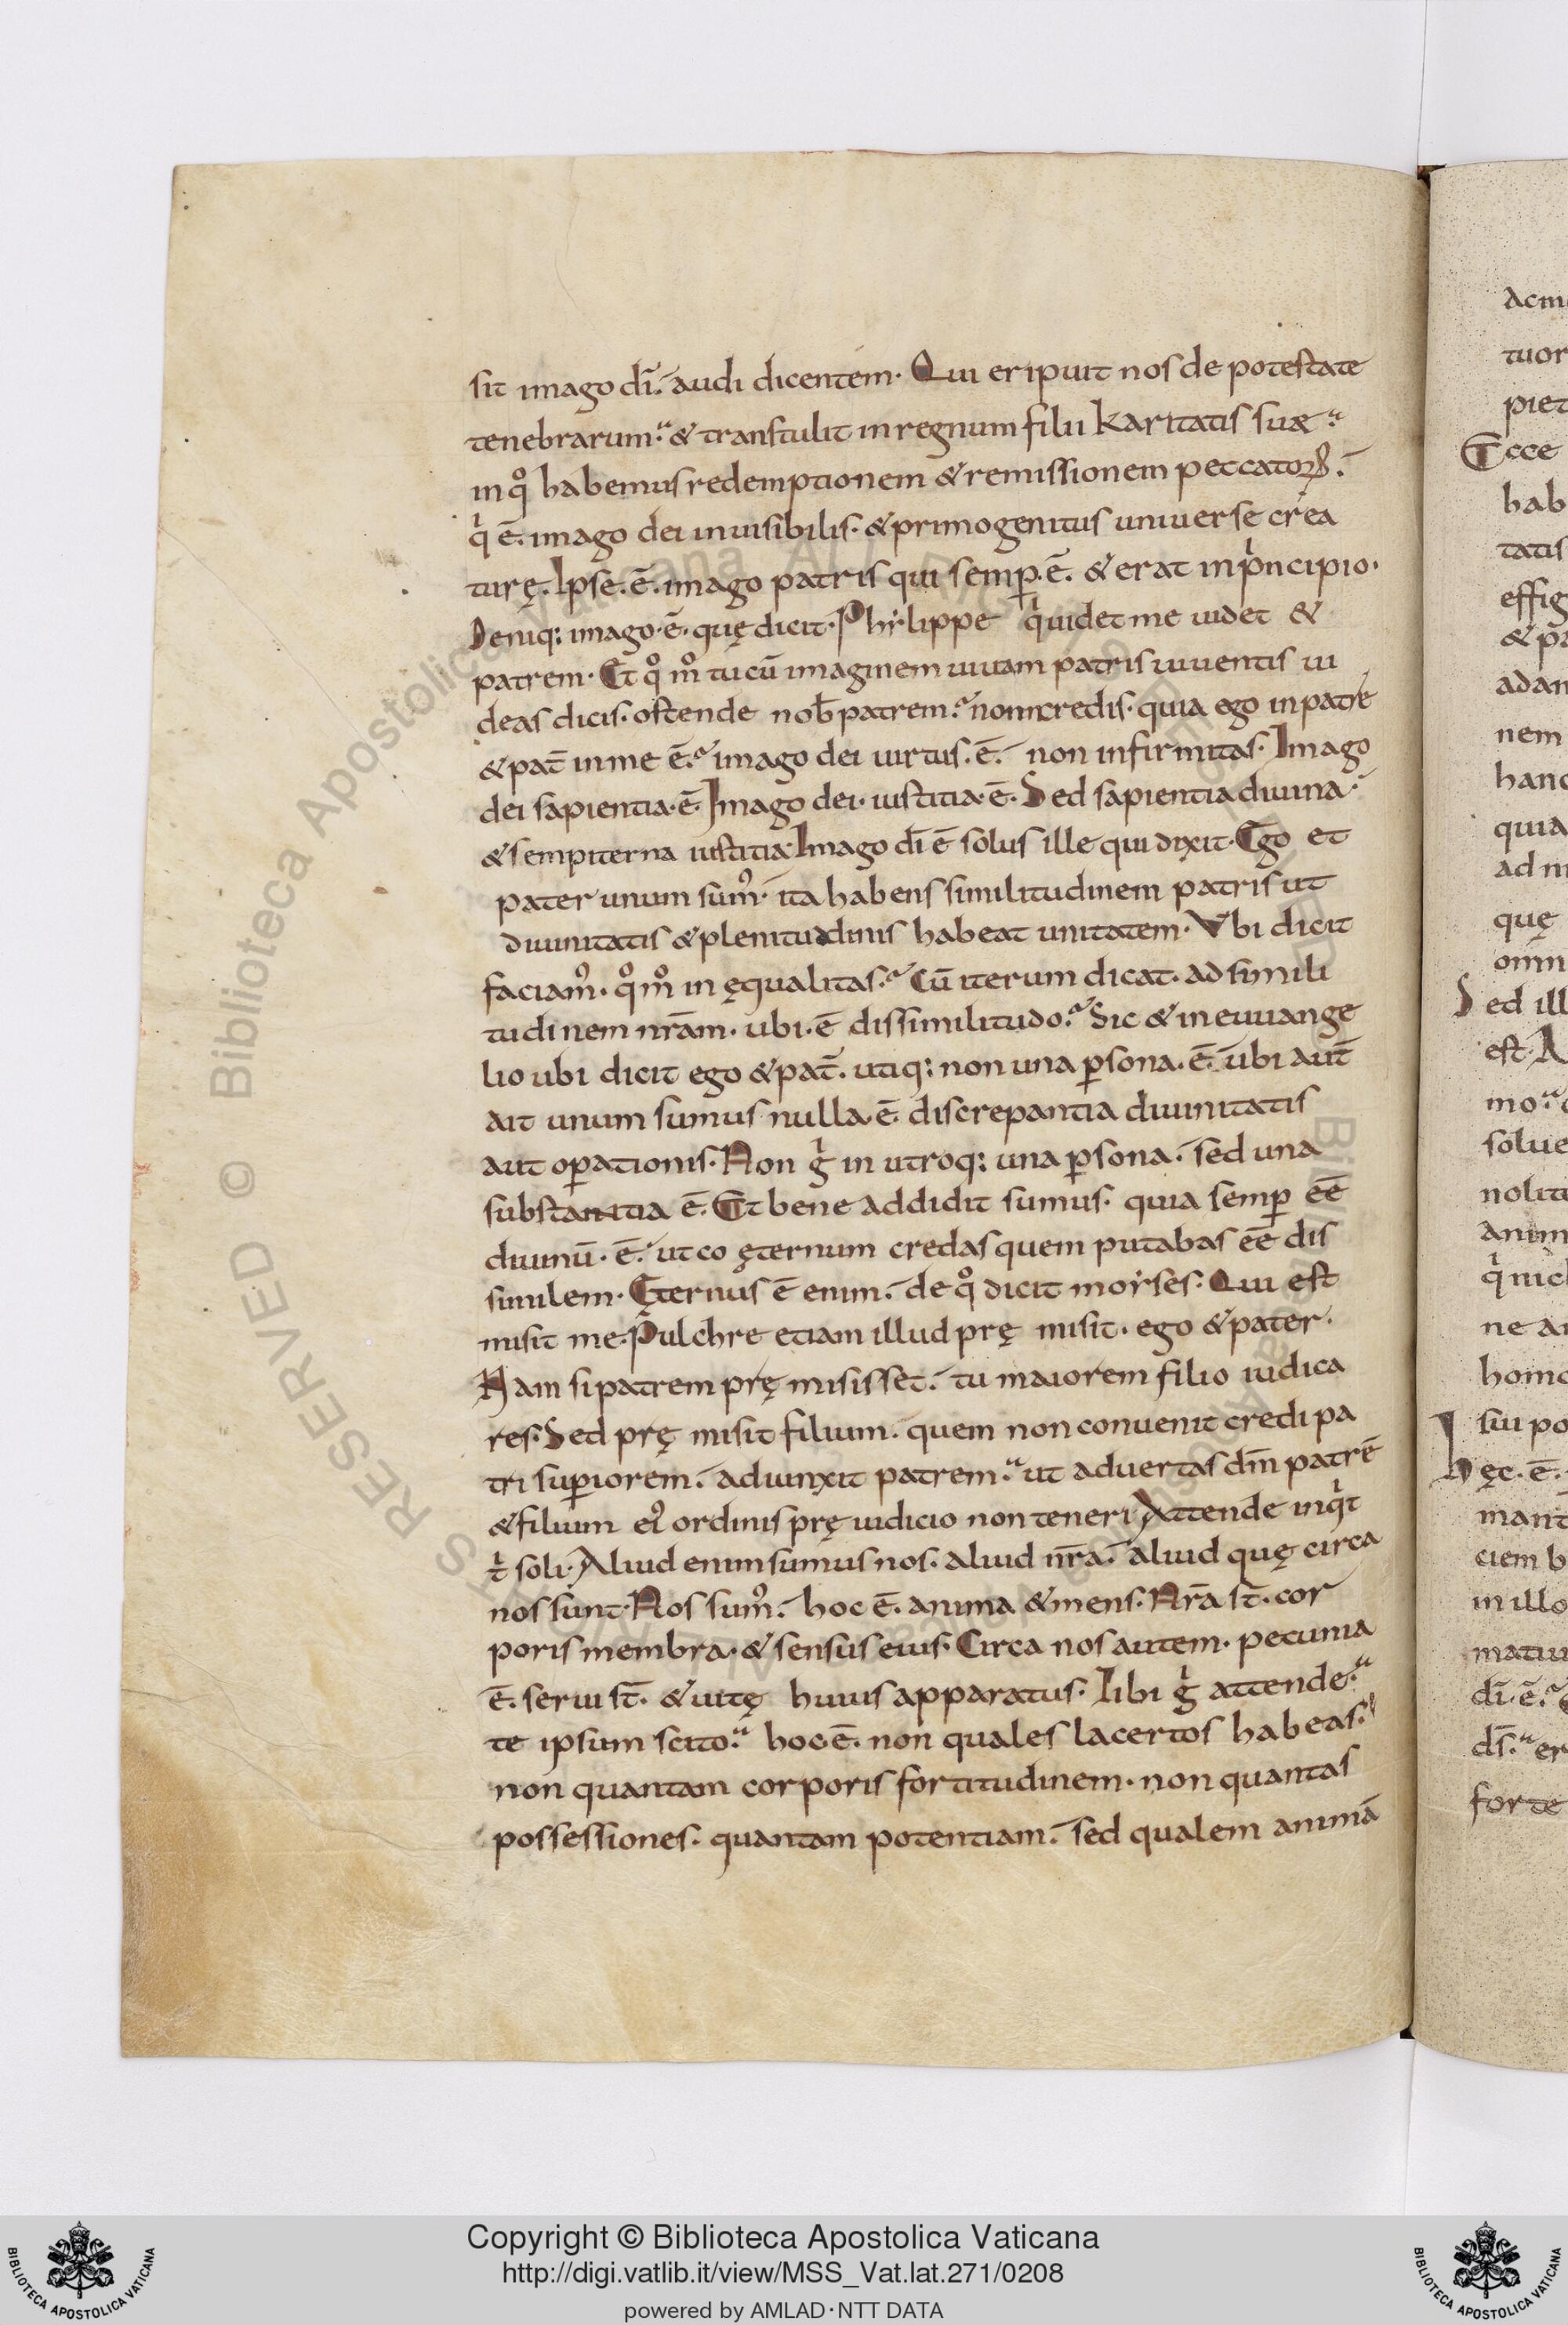 sit imago dī. audi dicentem. Qui eripuit nos de potestate
tenebrarum. & transtulit in regnum filii karitatis suæ
in qͦ habemus redemptionem & remissionem peccatoꝝ.
qⁱ ē. imago dei inuisibilis. & primogenitus uniuerse crea
turę. Ipse. ē. imago patris qui semꝑ. ē. & erat in pⁱncipio.
Deniq: imago. ē. quę dicit. Phẏlippe qⁱ uidet me uidet &
patrem. Et qͦ mͦ tu cū imaginem uiuam patris uiuentis ui
deas dicis. ostende nob̄ patrem. non credis. quia ego in patre
& pat̄ in me ē. imago dei uirtus. ē. non infirmitas. Imago
dei sapientia. ē. Imago dei. iustitia. ē. Sed sapientia diuina.
& sempiterna iustitia. Imago dī ē solus ille qui dixit. Ego et
pater unum sum᾽. ita habens similitudinem patris ut
diuinitatis & plenitudinis habeat unitatem. Vbi dicit
faciam᾽. qͦmͦ in ęqualitas. Cū iterum dicat. ad simili
tudinem nr̄am. ubi. ē dissimilitudo. Sic & in euuange
lio ubi dicit ego & pat̄. utiq: non una ꝑsona. ē. ubi aut̄
ait unum sumus nulla. ē. discrepantia diuinitatis
aut oꝑationis. Non gⁱ in utroq: una ꝑsona. sed una
substantia ē. Et bene addidit sumus. quia semꝑ eē
diuinū. ē. ut co ęternum credas quem putabas eē dis
similem. Ęternus ē enim. de qͦ dicit moẏses. Qui est
misit me. Pulchre etiam illud prę misit. ego & pater.
Nam si patrem prę misisset. tu maiorem filio iudica
res. Sed prę misit filium. quem non conuenit credi pa
tri suꝑiorem. adiunxit patrem. ut aduertas dm̄ patrē
& filium ei᾽ ordinis prę iudicio non teneri. Attende inqⁱt
tⁱ soli. Aliud enim sumus nos. aliud nr̄a. aliud quę circa
nos sunt. Nos sum᾽. hoc ē. anima & mens. Nr̄a st̄. cor
poris membra. & sensus eius. Circa nos autem. pecunia
ē. serui st̄. & uitę huius apparatus. Tibi gⁱ attende.
te ipsum scito. hoc ē. non quales lacertos habeas.
non quantam corporis fortitudinem. non quantas
possessiones. quantam potentiam. sed qualem animā
acm
tuor
piet
Ecce
hab
tatis
effig
& pa
adan
nem
hanc
quia
ad m
quę
omn
Sed ill
est. A
mo.
solue
nolit
anim
qⁱ nic
ne a
homo
sui po
hęc. ē.
mant
ciem b
in illo
matiu
dī. ē.
ds̄. er
forte
© Biblioteca Apostolica Vaticana
RESERVED
Copyright © Biblioteca Apostolica Vaticana
http://digi.vatlib.it/view/MSS_Vat.lat.271/0208
powered by AMLAD·NTT DATA
BIBLIOTECA APOSTOLICA VATICANA
BIBLIOTECA APOSTOLICA VATICANA